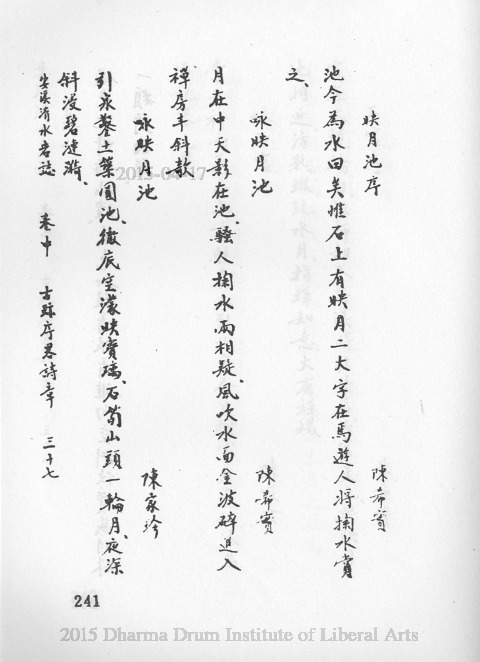 映月池序
陳希實
池今為水田矣惟石上有映月二大字在焉遊人將掬水賞
之、
咏映月池
陳希實
月在中天影在池、騷人掬水兩相疑、風吹水面金波碎進入
禪房半斜欹
咏映月池
陳家珍
引泉鑿土築圓池、徹底空濛映寶璃、石筍山頭一輪月、夜深
斜浸碧漣漪、
安溪清水岩誌 卷中 古跡序畧詩章 三十七
241
2015-04-17
2015 Dharma Drum Institute of Liberal Arts